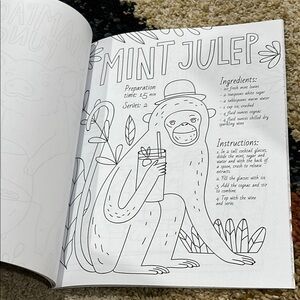 MINT JULEP
Preparation
time: 15 min
Serves: 2
Ingredients:
- 10 fresh mint leaves
- 2 teaspoons white sugar
- 2 tablespoons warm water
- 1 cup ice, cracked
- 4 fluid ounces cognac
- 4 fluid ounces chilled dry
sparkling wine
Instructions:
1. In 2 tall cocktail glasses,
divide the mint, sugar and
water and with the back
of a spoon, crush to release
extracts.
2. Fill the glasses with ice.
3. Add the cognac and stir
to combine.
4. Top with the wine
and serve.